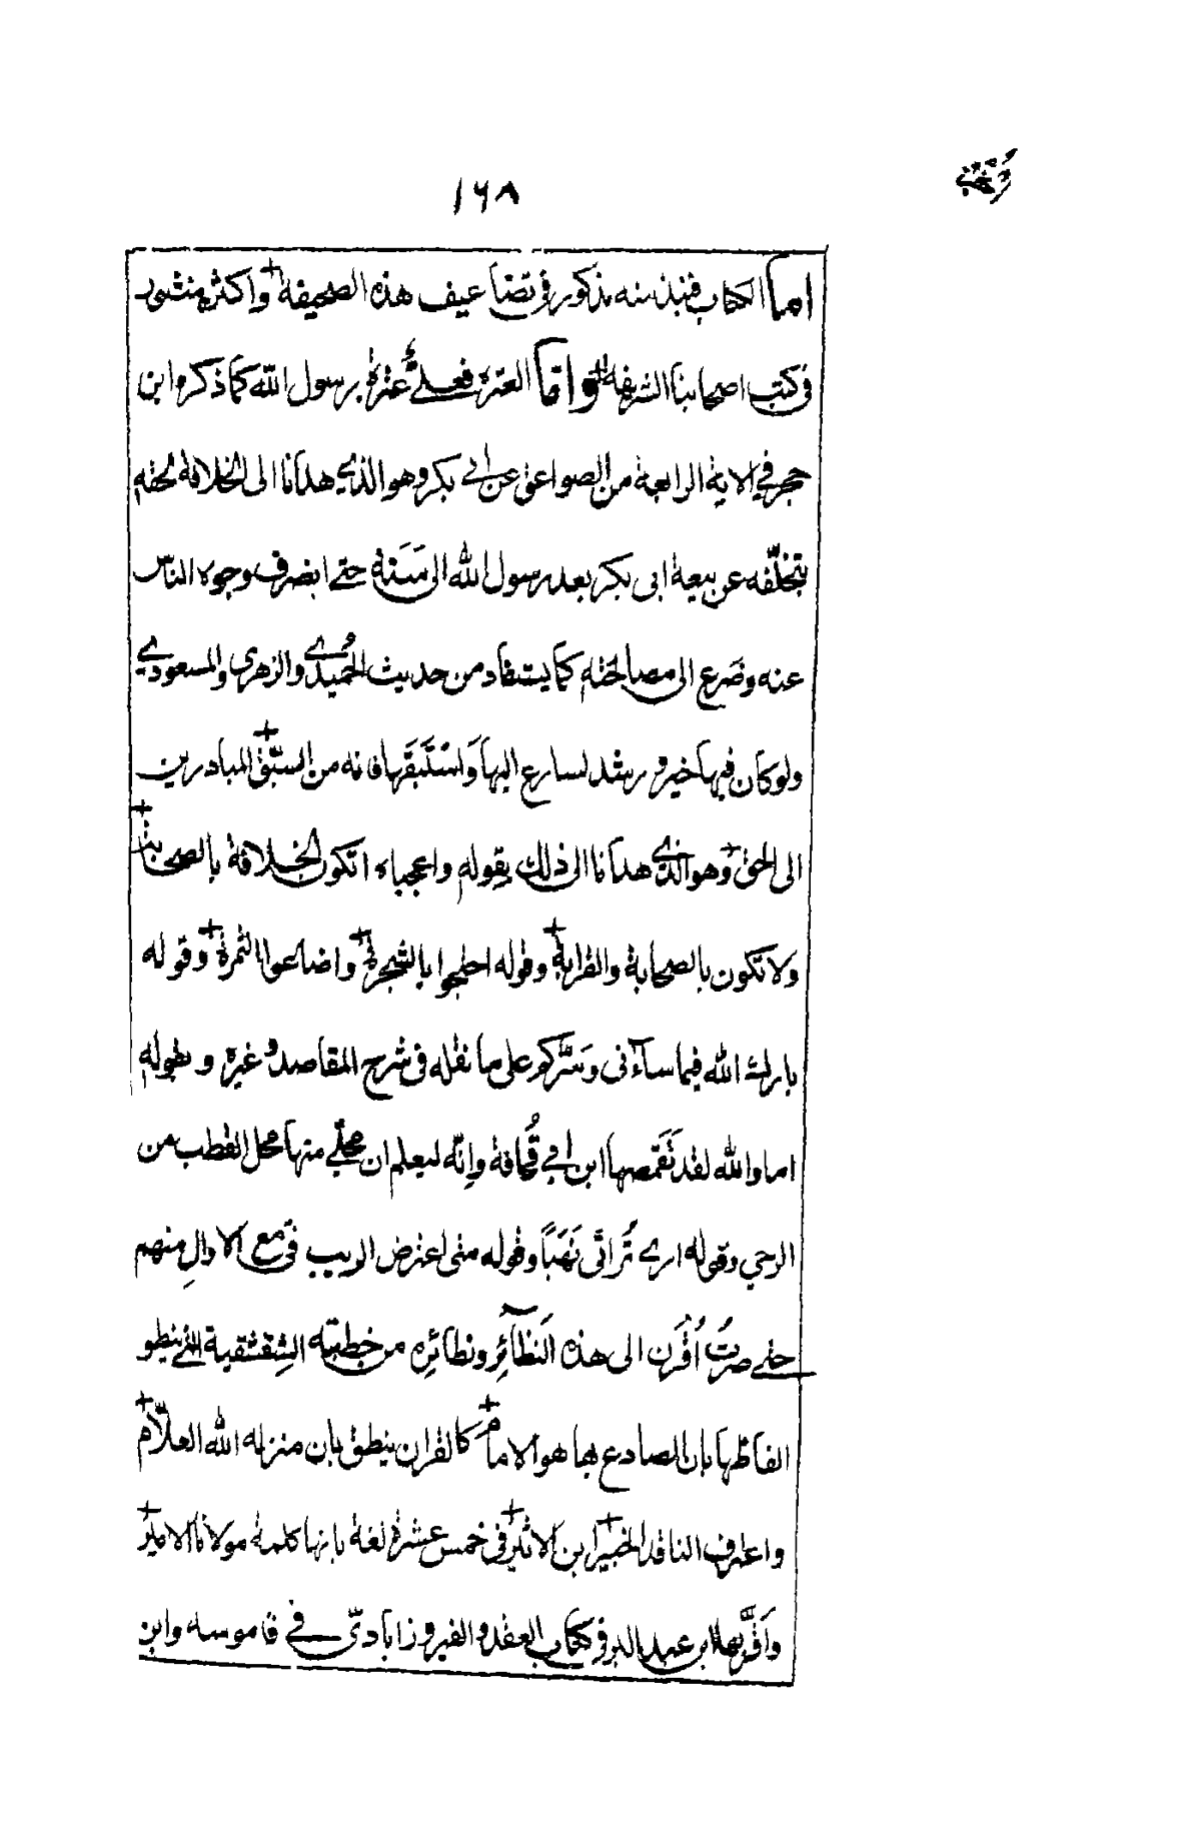 ١٦٨
اما الكتاب فنبذ منه مذكور فى تضاعيف هذه الصحيفة واكثره منثور
فى كتب اصحابنا الشريفة واما العترة فعلىٌّ عترة رسول الله كما ذكره ابن
حجر في الاية الرابعة من الصواعق عن ابي بكر وهو الذي هدانا الى الخلافة الحقه
بتخلّفه عن بيعة ابى بكر بعد رسول الله الى سَنَة حتى انصرف وجوه الناس
عنه وضَرع الى مصالحته كما يستفاد من حديث الحُميدي والزهرى والمسعودي
ولو كان فيها خير ورشد لسارع اليها وَاسْتَبَقَها فانه من السبّق المبادرين
الى الحق وهو الذي هدانا الى ذلك بقوله واعجباه اتكون الخلافة بالصحابة
ولا تكون بالصحابة والقرابة وقوله احتجوا بالشجرة واضاعوا الثمرة وقوله
بارك الله فيما ساءنى وسَرَّكم على ما نقله فى شرح المقاصد وغيره وبقوله
اما والله لقد تَقَمّصها ابن ابي قُحافة وانّه ليعلم ان محلّي منها محل القطب من
الرحي وقوله ارى تُراثى نَهَباً وقوله متى اعترض الريب فيّ مع الاوّلِ منهم
حتى صرتُ اُقرَن الى هذه النَظآئِر ونظائره من خطبته الشِقشقية التي ينطق
الفاظها بان الصادع بها هو الامام كالقران ينطق بان منزله الله العلّام
واعترف الناقد الخبير ابن الاثير فى خمس عشرة لغة بانها كلمة مولانا الامير
وَاَقرَّ بها ابن عبد البر فى كتاب العقد والفيروزابادىّ في قاموسه وابن